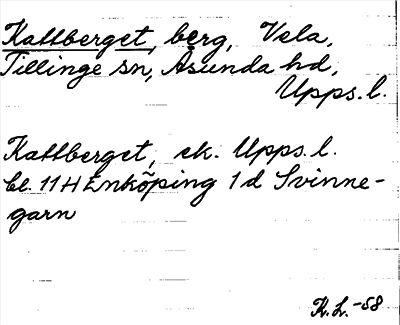 Kattberget, berg, Vela,
Tillinge sn, Åsunda hd,
Upps.l.
Kattberget, ek. Upps.l.
bl. 11H Enköping 1d Svinne-
garn
K.L. -58